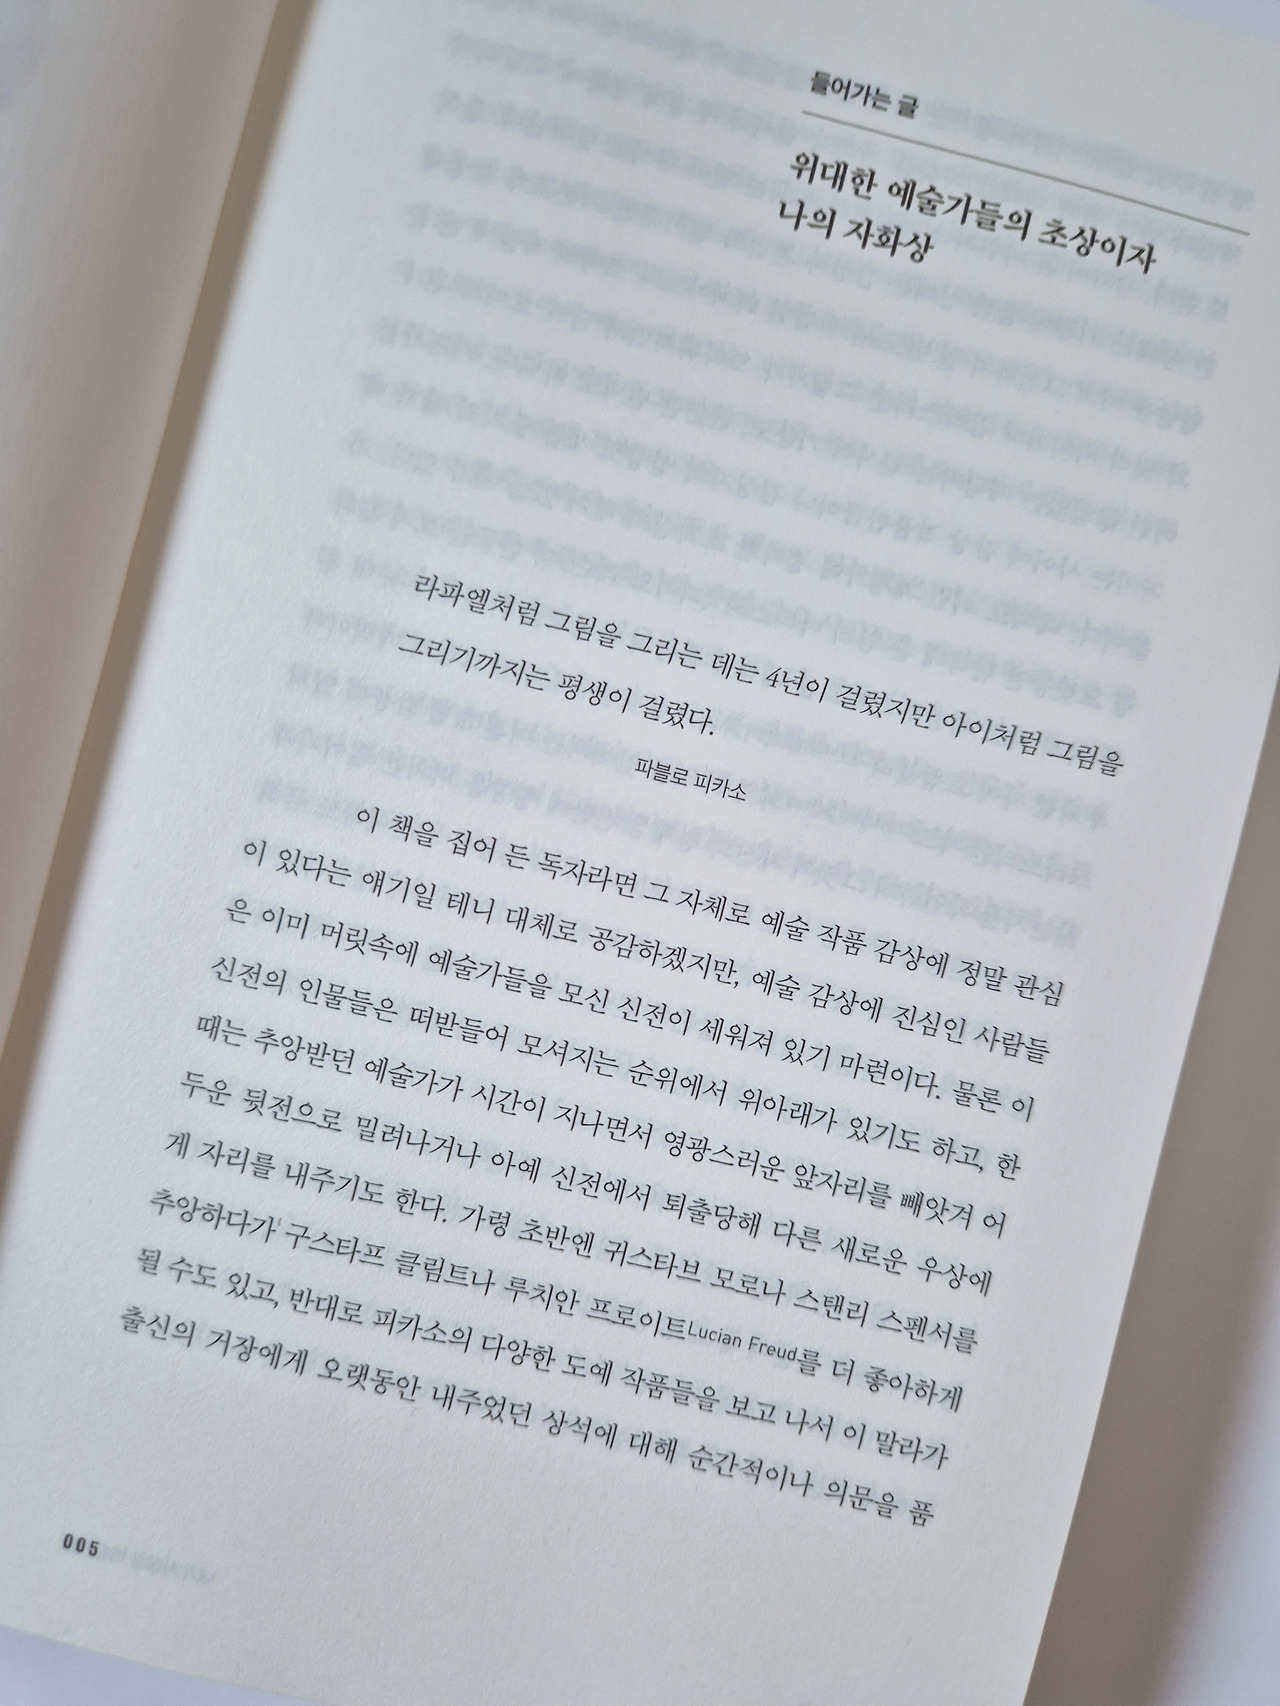 들어가는 글
위대한 예술가들의 초상이자
나의 자화상
라파엘처럼 그림을 그리는 데는 4년이 걸렸지만 아이처럼 그림을
그리기까지는 평생이 걸렸다.
파블로 피카소
이 책을 집어 든 독자라면 그 자체로 예술 작품 감상에 정말 관심
이 있다는 얘기일 테니 대체로 공감하겠지만, 예술 감상에 진심인 사람들
은 이미 머릿속에 예술가들을 모신 신전이 세워져 있기 마련이다. 물론 이
신전의 인물들은 떠받들어 모셔지는 순위에서 위아래가 있기도 하고, 한
때는 추앙받던 예술가가 시간이 지나면서 영광스러운 앞자리를 빼앗겨 어
두운 뒷전으로 밀려나거나 아예 신전에서 퇴출당해 다른 새로운 우상에
게 자리를 내주기도 한다. 가령 초반엔 귀스타브 모로나 스탠리 스펜서를
추앙하다가 구스타프 클림트나 루치안 프로이트Lucian Freud를 더 좋아하게
될 수도 있고, 반대로 피카소의 다양한 도예 작품들을 보고 나서 이 말라가
출신의 거장에게 오랫동안 내주었던 상석에 대해 순간적이나 의문을 품
005